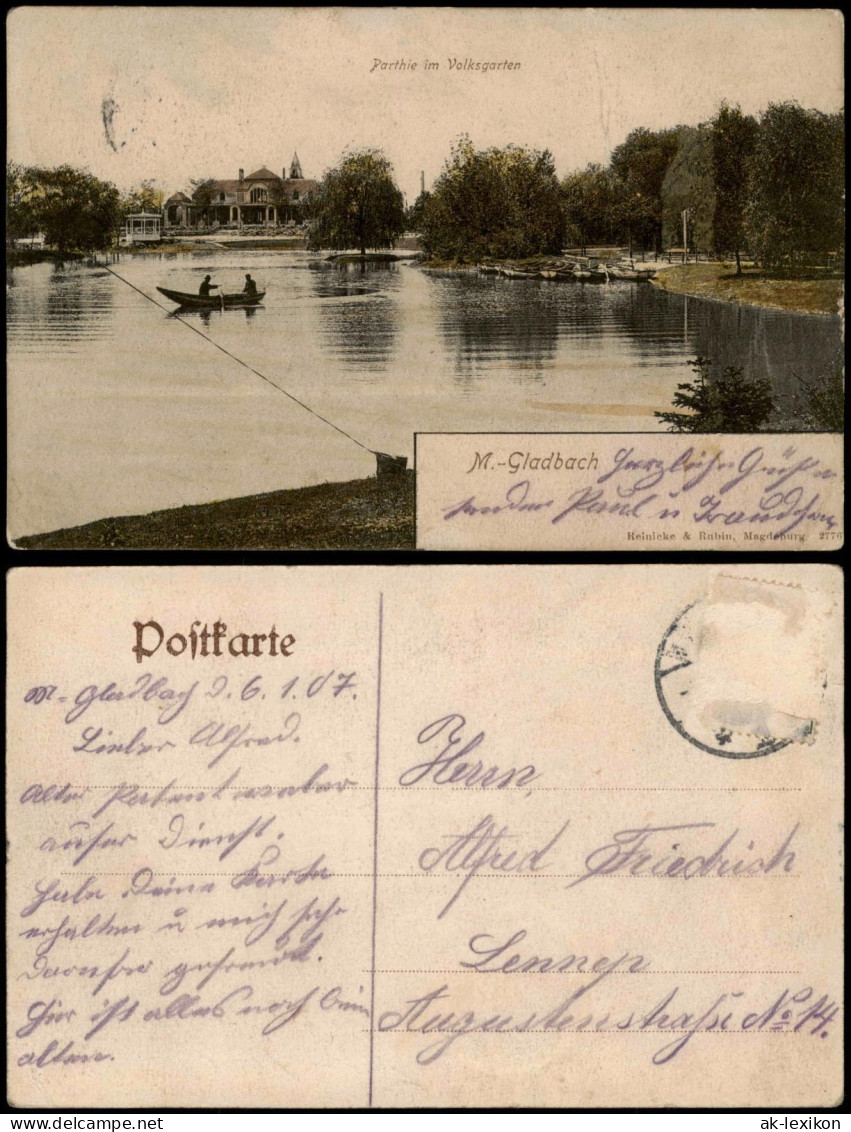 Parthie im Volksgarten
M.-Gladbach Herzliche Grüße
senden Paul u
Reinicke & Rubin, Magdeburg. 2776
Postkarte
M-Gladbach d. 6. 1. 07.
Lieber Alfred.
Alter
außer Dienst.
Habe Deine Karte
erhalten u mich sehr
darüber gefreut.
Hier ist alles noch beim
alten.
Herrn,
Alfred Friedrich
Lennep
Augustenstraße No 14.
ak-lexikon.com